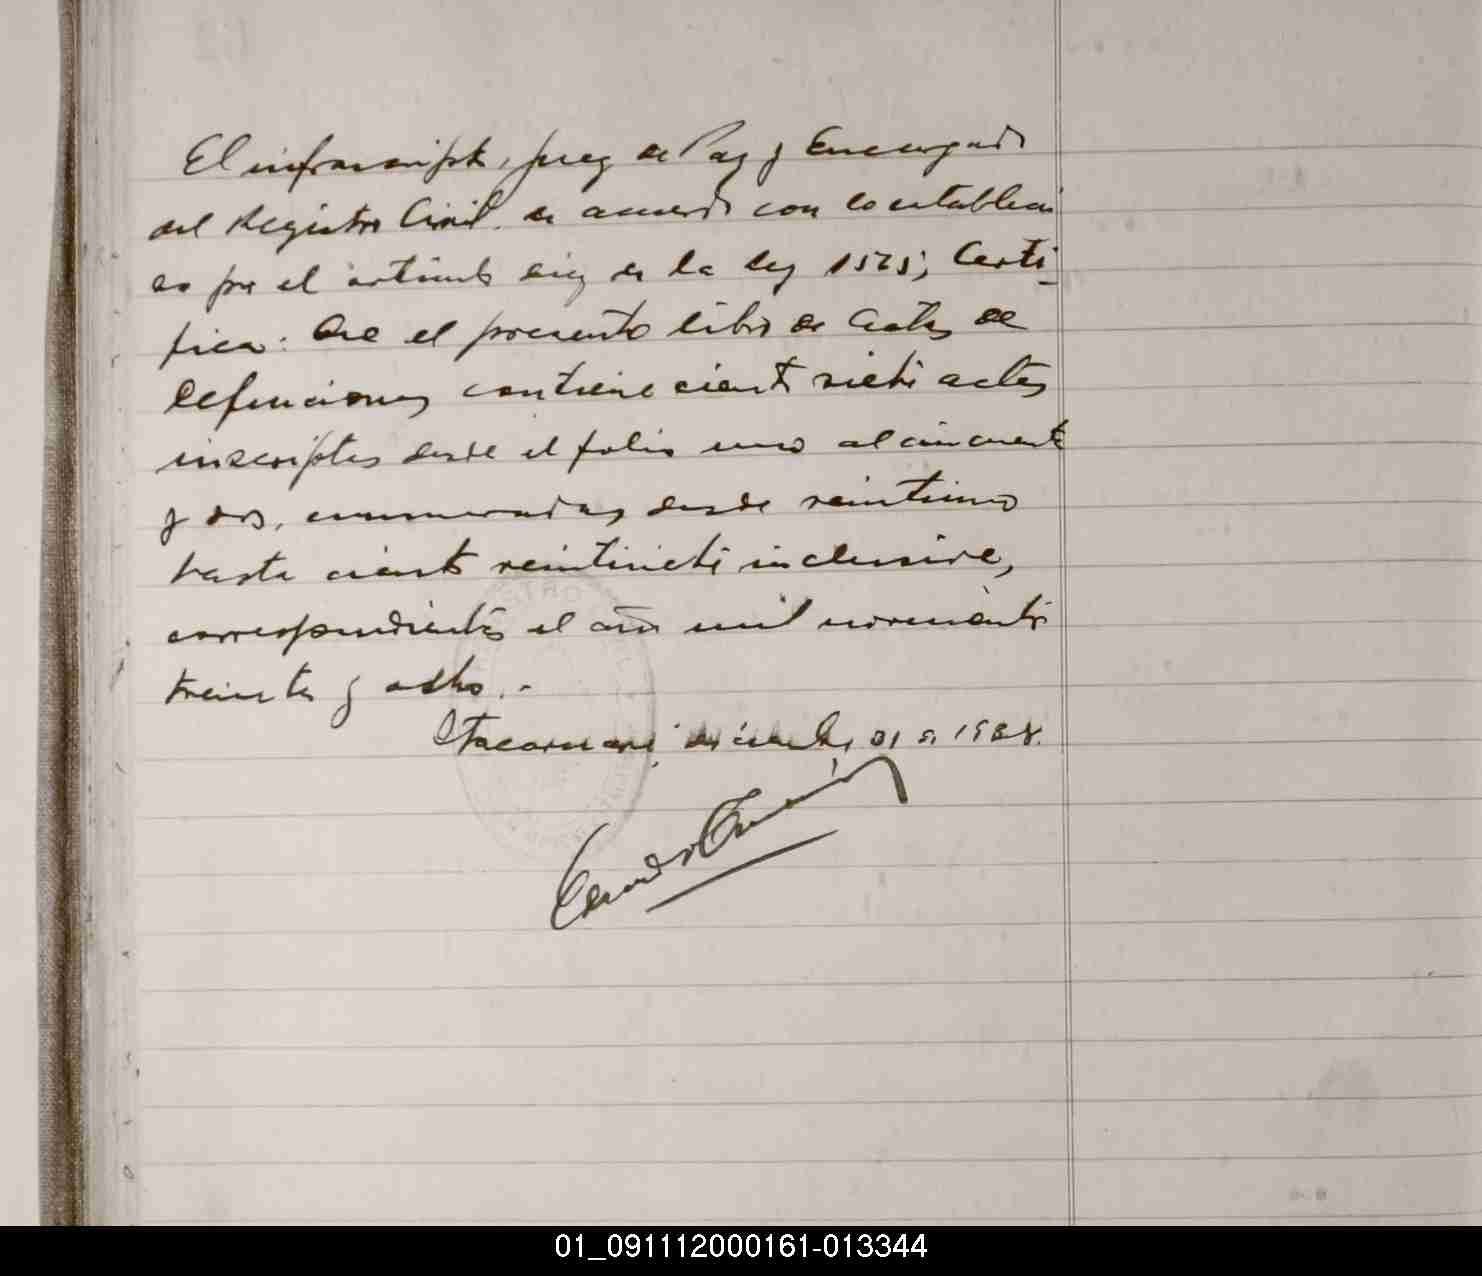 El infrascripto, Juez de Paz y Encargado
del Registro Civil, de acuerdo con lo estableci
do por el articulo diez de la ley 1575; Certi-
fica: Que el presente libro de actas de
defunciones contiene ciento siete actas
inscriptas desde el folio uno al cincuenta
y dos, enumeradas desde veintiuno
hasta ciento veintisiete inclusive,
correspondientes al año mil novecientos
treinta y ocho.-
diciembre 31 de 1938.
01_091112000161-013344